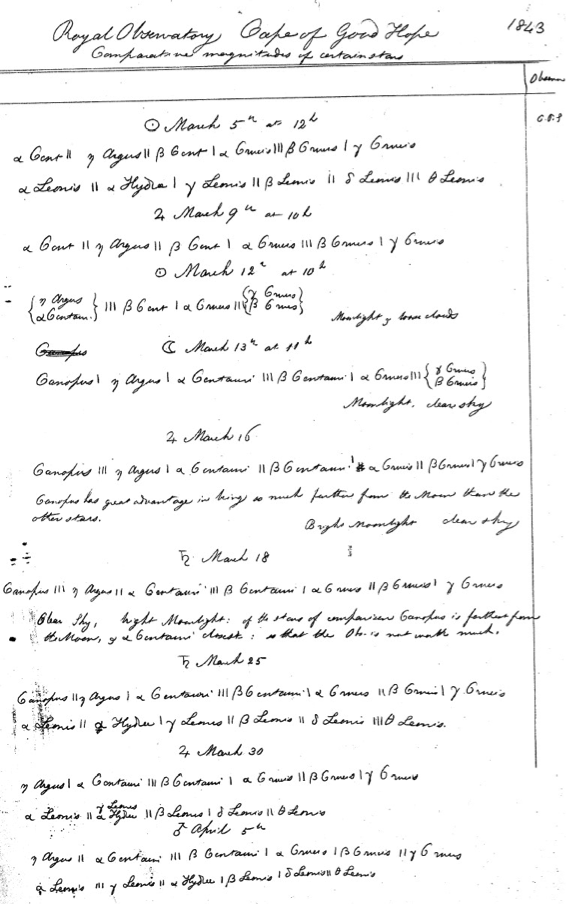 Royal Observatory Cape of Good Hope 1843
Comparative magnitudes of certain stars
☉ March 5th at 12h
α Cent || η Argus || β Cent | α Crucis ||| β Crucis | γ Crucis
α Leonis || α Hydræ | γ Leonis || β Leonis || δ Leonis ||| θ Leonis
♃ March 9th at 10h
α Cent || η Argus || β Cent | α Crucis ||| β Crucis | γ Crucis
☉ March 12th at 10h
{η Argus
α Centauri} ||| β Cent | α Crucis ||| {γ Crucis
β Crucis}
Moonlight & loose clouds
☾ March 13th at 11h
Canopus | η Argus | α Centauri ||| β Centauri | α Crucis ||| {γ Crucis
β Crucis}
Moonlight, clear sky
♃ March 16
Canopus ||| η Argus | α Centauri || β Centauri | α Crucis || β Crucis | γ Crucis
Canopus has great advantage in being so much farther from the Moon than the
other stars.
Bright Moonlight clear sky
♄ March 18
Canopus ||| η Argus || α Centauri ||| β Centauri | α Crucis || β Crucis | γ Crucis
Clear Sky, bright Moonlight: of the stars of comparison Canopus is farthest from
the Moon, & α Centauri closest: so that the Obs. is not worth much.
♄ March 25
Canopus || η Argus | α Centauri ||| β Centauri | α Crucis || β Crucis | γ Crucis
α Leonis || α Hydræ | γ Leonis || β Leonis || δ Leonis ||| θ Leonis.
♃ March 30
η Argus | α Centauri ||| β Centauri | α Crucis || β Crucis | γ Crucis
γ Leonis
α Leonis || α Hydræ || β Leonis | δ Leonis || θ Leonis
♂ April 5th
η Argus || α Centauri ||| β Centauri | α Crucis | β Crucis || γ Crucis
α Leonis ||| γ Leonis || α Hydræ | β Leonis | δ Leonis || θ Leonis